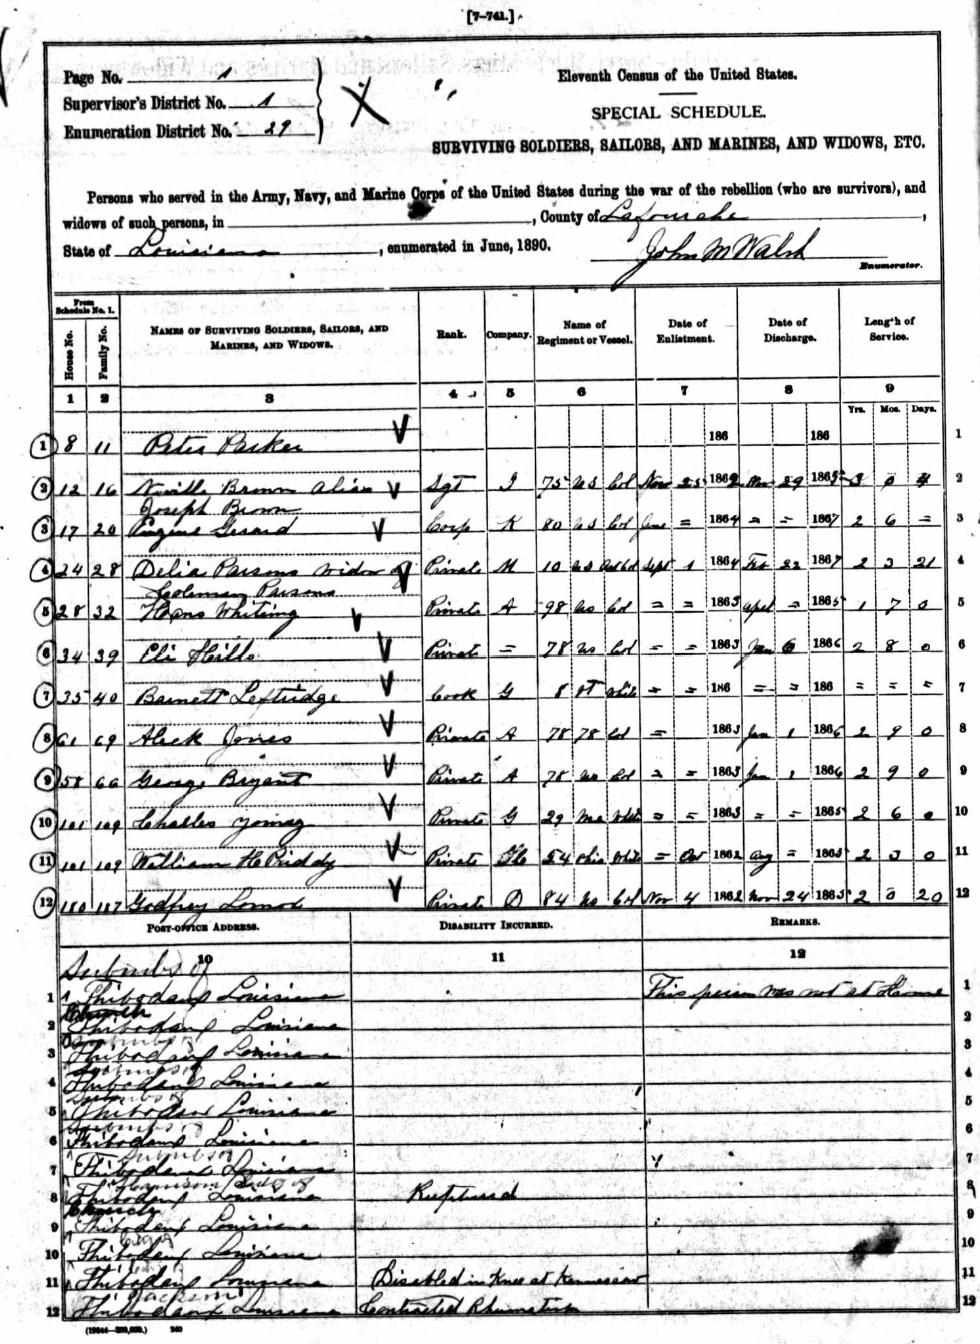 [7-741.]
Page No. 1
Supervisor's District No. 1
Enumeration District No. 29
Eleventh Census of the United States.
SPECIAL SCHEDULE.
SURVIVING SOLDIERS, SAILORS, AND MARINES, AND WIDOWS, ETC.
Persons who served in the Army, Navy, and Marine Corps of the United States during the war of the rebellion (who are survivors), and
widows of such persons, in , County of Lafourche ,
State of Louisiana , enumerated in June, 1890. John M Walsh
Enumerator.
From Schedule No. 1.
House No. Family No. NAMES OF SURVIVING SOLDIERS, SAILORS, AND MARINES, AND WIDOWS. Rank. Company. Name of Regiment or Vessel. Date of Enlistment. Date of Discharge. Length of Service.
1 2 3 4 5 6 7 8 9
Yrs. Mos. Days.
1 8 11 Peter Parker 186 186 1
2 12 16 Neville Brown alias Sgt I 75 US Col Nov 25 1862 Nov 29 1865 3 0 4 2
Joseph Brown
3 17 20 Eugene Gerard Corp K 80 US Col June = 1864 = = 1867 2 6 = 3
4 24 28 Delia Parsons widow of Private M 10 US Col Sept 1 1864 Feb 22 1867 2 3 21 4
Coleman Parsons
5 28 32 Whiting Private A 98 US Col = = 1863 April = 1865 1 7 0 5
6 34 39 Eli Hills Private = 78 US Col = = 1863 Jan 6 1866 2 8 0 6
7 35 40 Barnett Leftridge Cook G 8 White = = 186 = = 186 = = = 7
8 61 69 Aleck Jones Private A 78 78 Col = 1863 Jan 1 1866 2 9 0 8
9 58 66 George Bryant Private A 78 US Col = = 1863 Jan 1 1866 2 9 0 9
10 101 109 Charles Young Private G 29 Me White = = 1863 = = 1865 2 6 0 10
11 101 109 William H Priddy Private 54 Ohio White = Oct 1862 Aug = 1865 2 3 0 11
12 180 187 Godfrey Lomax Private D 84 US Col Nov 4 1862 Nov 24 1865 2 0 20 12
POST-OFFICE ADDRESS. DISABILITY INCURRED. REMARKS.
10 11 12
Suburbs of
1 Thibodaux Louisiana This person was not at Home 1
2 Thibodaux Louisiana 2
3 Thibodaux Louisiana 3
4 Thibodaux Louisiana 4
Suburbs of
5 Thibodaux Louisiana 5
Suburbs of
6 Thibodaux Louisiana 6
Suburbs of
7 Thibodaux Louisiana 7
8 Thibodaux Louisiana Ruptured 8
9 Thibodaux Louisiana 9
10 Thibodaux Louisiana 10
11 Thibodaux Louisiana Disabled in Knee at Kennesaw 11
Jackson
12 Thibodaux Louisiana Contracted Rheumatism 12